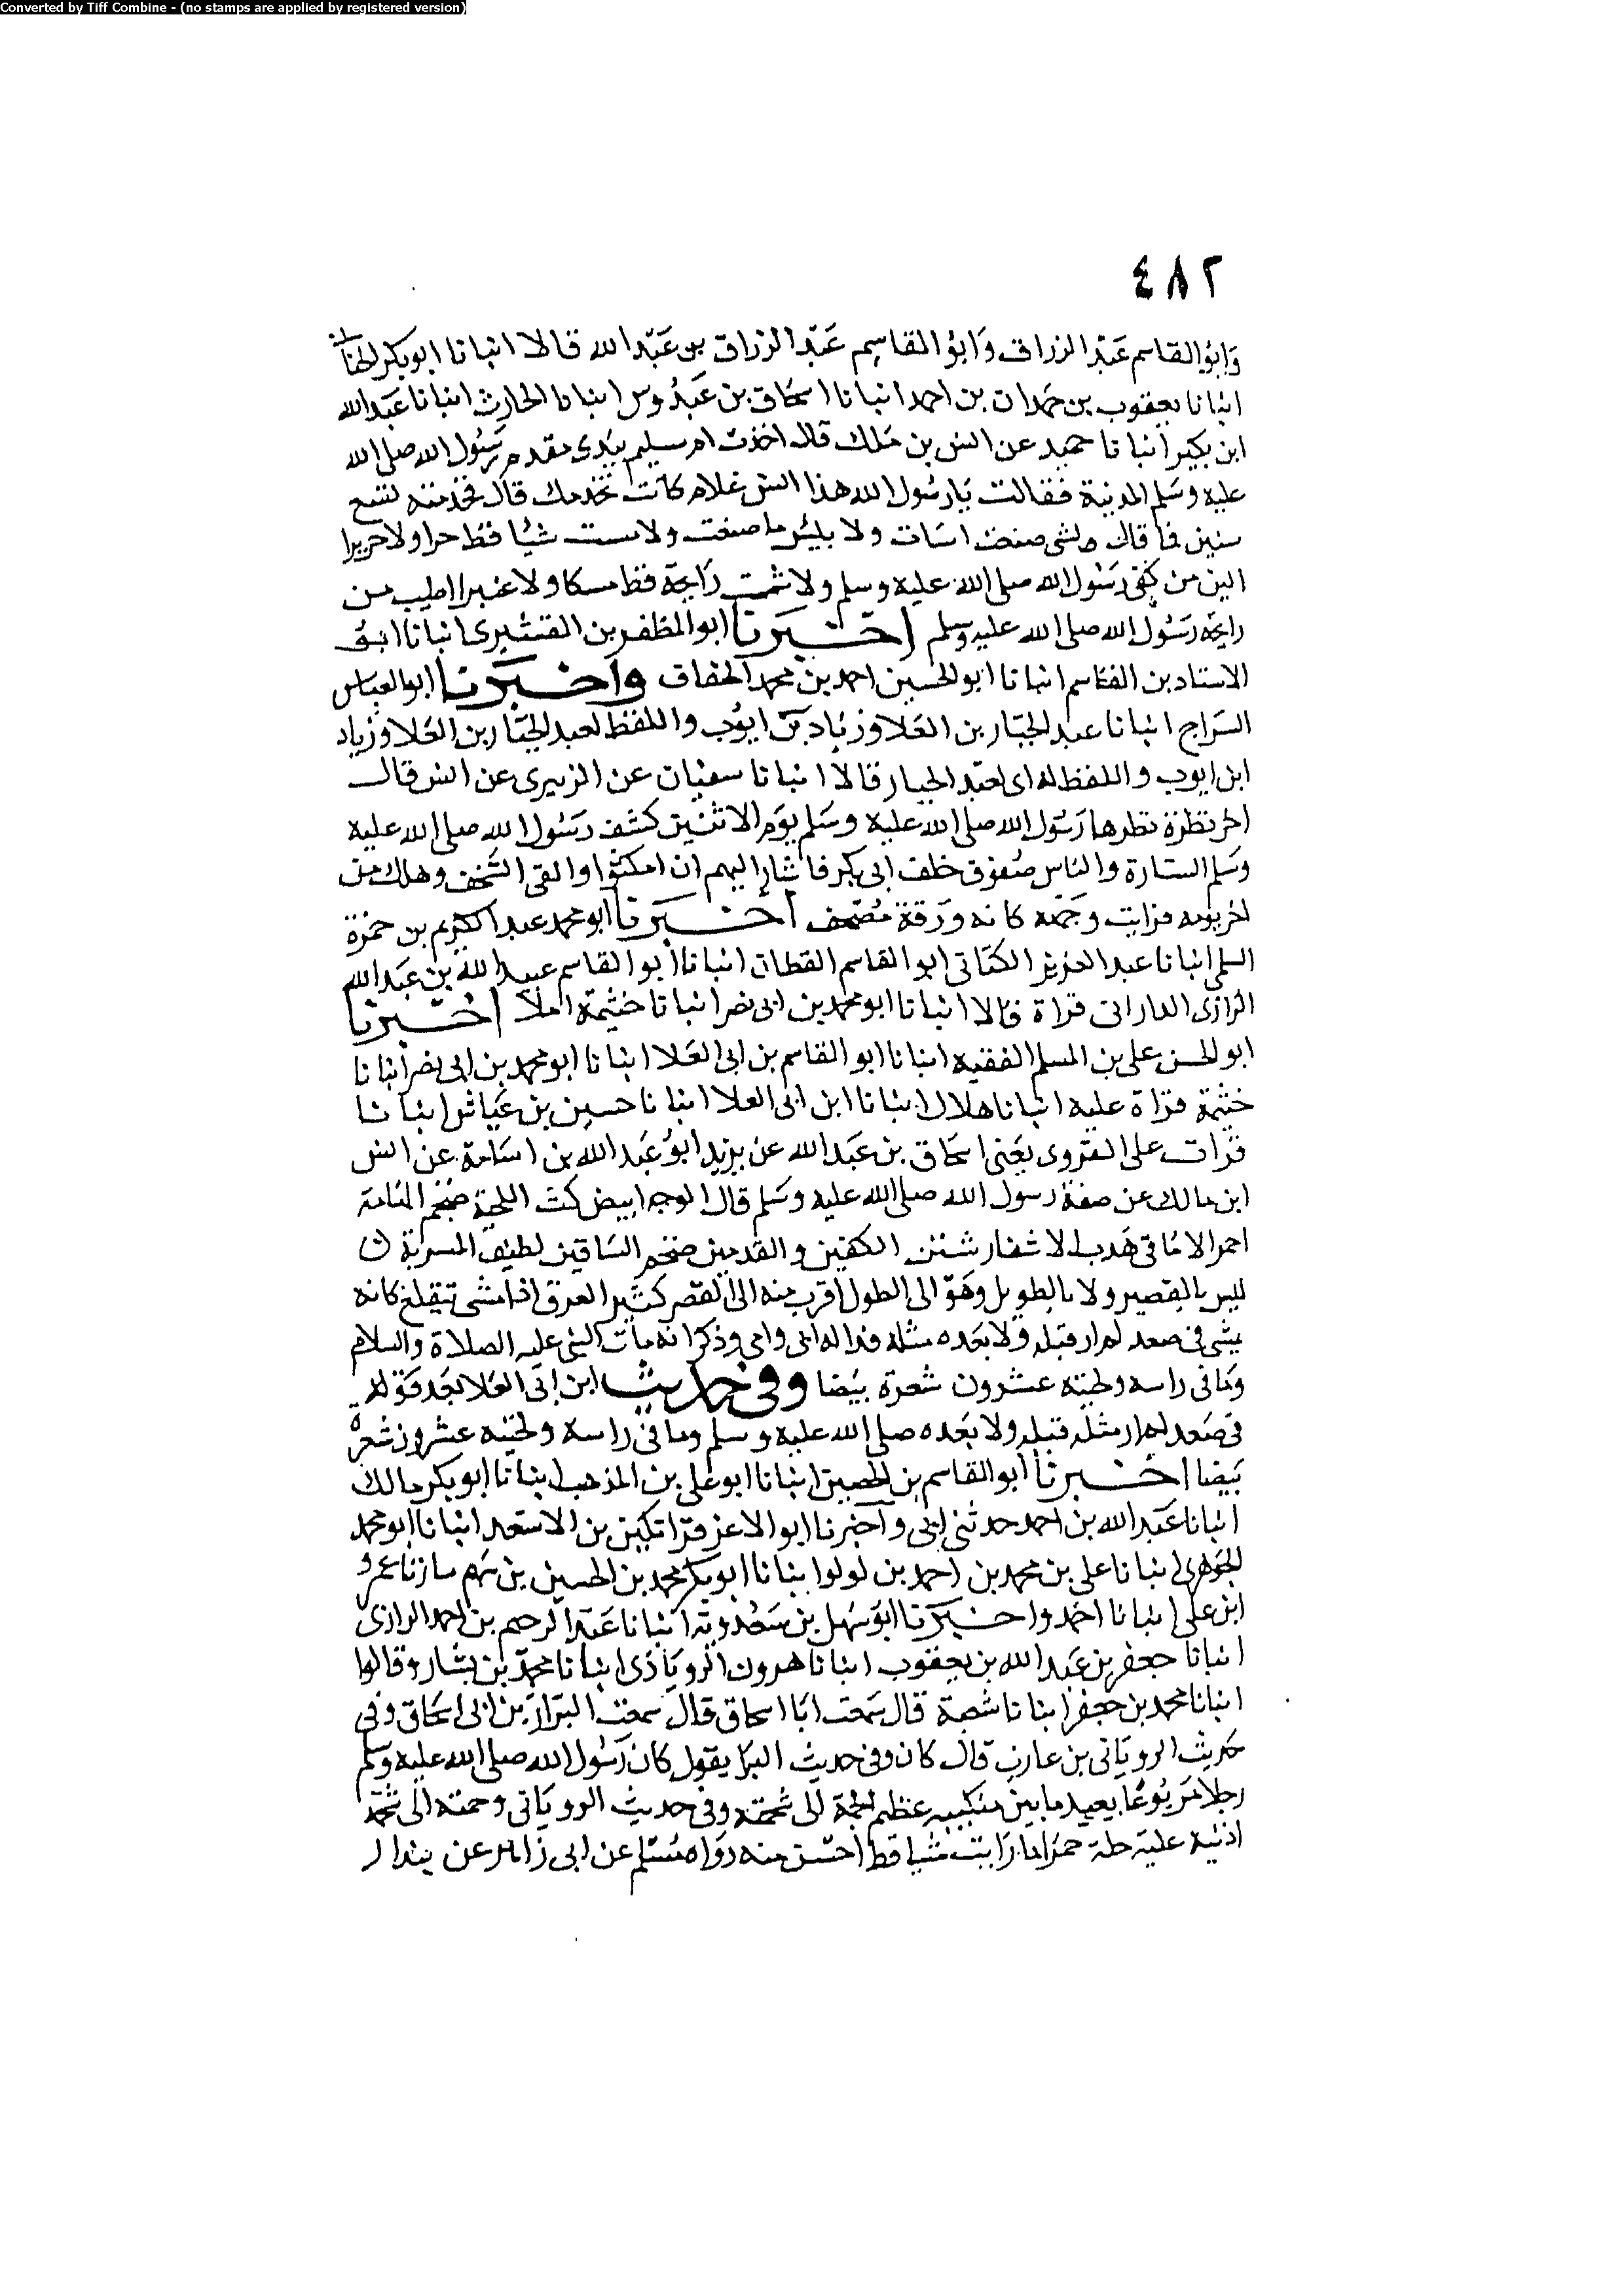 Converted by Tiff Combine - (no stamps are applied by registered version)
٤٨٢
وابو القاسم عبد الرزاق وابو القاسم عبد الرزاق بن عبد الله قالا انبانا ابو بكر
انبانا يعقوب بن حمدان بن احمد انبانا اسحاق بن عبدوس انبانا الحارث انبانا عبد الله
ابن بكير انبانا حميد عن انس بن ملك قال اخذت ام سليم بيدى مقدم رسول الله صلى الله
عليه وسلم المدينة فقالت يا رسول الله هذا انس غلام كاتب يخدمك قال فخدمته تسع
سنين فما قال لشى صنعت اسات ولا بئس ما صنعت ولا مسست شيا قط خزا ولا حريرا
الين من كف رسول الله صلى الله عليه وسلم ولا شممت رايحة قط مسكا ولا عنبرا اطيب من
رايحة رسول الله صلى الله عليه وسلم اخبرنا ابو المظفر بن القشيرى انبانا ابو
الاستاد بن القاسم انبانا ابو الحسين احمد بن محمد الخفاف واخبرنا ابو العباس
السراج انبانا عبد الجبار بن العلا وزياد بن ايوب واللفظ لعبد الجبار بن العلا وزياد
ابن ايوب واللفظ له اى لعبد الجبار قالا انبانا سفيان عن الزهرى عن انس قال
اخر نظرة نظرها رسول الله صلى الله عليه وسلم يوم الاثنين كشف رسول الله صلى الله عليه
وسلم الستارة والناس صفوف خلف ابى بكر فاشار اليهم ان امكثوا والقى السجف وهلك من
اخر يومه فرايت وجهه كانه ورقة مصحف اخبرنا ابو محمد عبد الكريم بن حمزة
السلمى انبانا عبد العزيز الكتانى ابو القاسم القطان انبانا ابو القاسم عبيد الله بن عبد الله
الرازى الدارانى قراة قالا انبانا ابو محمد بن ابى نصر انبانا خثيمة املا اخبرنا
ابو الحسن على بن المسلم الفقيه انبانا ابو القاسم بن ابى العلا انبانا ابو محمد بن ابى نصر انبانا
خثيمة قراة عليه انبانا هلال انبانا ابن ابى العلا انبانا حسين بن عياش انبانا
قرات على الفروى يعنى اسحاق بن عبد الله عن يزيد ابو عبد الله بن اسامة عن انس
ابن مالك عن صفة رسول الله صلى الله عليه وسلم قال الوجه ابيض كث اللحية ضخم الهامة
احمر الاماقى هدب الاشفار شثن الكفين والقدمين ضخم الساقين لطيف المسربة
ليس بالقصير ولا بالطويل وهو الى الطول اقرب منه الى القصر كثير العرق اذا مشى تقلع كانه
يمشى فى صعد لم ار قبله ولا بعده مثله فداله ابى وامى وذكر انه مات النبى عليه الصلاة والسلام
وما فى راسه ولحيته عشرون شعرة بيضا وفى حديث ابن ابى العلا بعد قوله
فى صعد لم ار مثله قبله ولا بعده صلى الله عليه وسلم وما فى راسه ولحيته عشرون شعرة
بيضا اخبرنا ابو القاسم بن الحصين انبانا ابو على بن المذهب انبانا ابو بكر مالك
انبانا عبد الله بن احمد حدثنى ابى واخبرنا ابو الاعز قراتكين بن الاسعد انبانا ابو محمد
الجوهرى انبانا على بن محمد بن احمد بن لولو انبانا ابو بكر محمد بن الحسين بن عمرو
ابن على انبانا احمد واخبرنا ابو سهل بن سعدويه انبانا عبد الرحمم بن احمد الرازى
انبانا جعفر بن عبد الله بن يعقوب انبانا هرون الرويادى انبانا محمد بن بشار وقالوا
انبانا محمد بن جعفر انبانا شعبة قال سمعت ابا اسحاق قال سمعت البراز بن ابى اسحاق وفى
حديث الرويانى بن عازب قال كان وفى حديث البرا يقول كان رسول الله صلى الله عليه وسلم
رجلا مربوعا بعيد ما بين منكبيه عظيم الجمة الى شحمة وفى حديث الرويانى وجمته الى شحمة
اذنيه عليه حلة حمرا ما رايت شيا قط احسن منه رواه مسلم عن ابى عن بندار